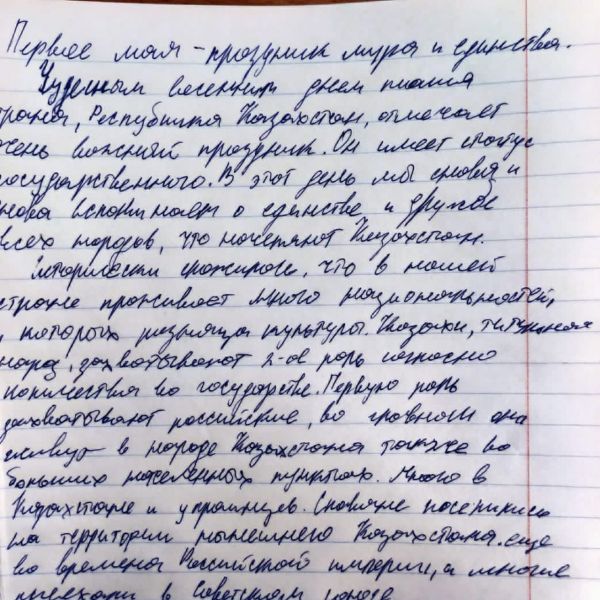 Первое мая – праздник мира и единства.
Чудесным весенним днем наша
трана, Республика Казахстан, отмечает
чень важный праздник. Он имеет статус
государственного. В этот день мы снова и
нова вспоминаем о единстве и дружбе
всех народов, что населяют Казахстан.
Исторически сложилось, что в нашей
стране проживает много национальностей,
у которых разная культура. Казахи, титульная
нация, 2-ю роль согласно
количества во государстве. Первую роль
российские, во они
живут в народе Казахстана также во
больших населенных пунктах. Много в
Казахстане и украинцев. Славяне поселились
на территории нынешнего Казахстана еще
во времена Российской империи, а многие
приехали в советском